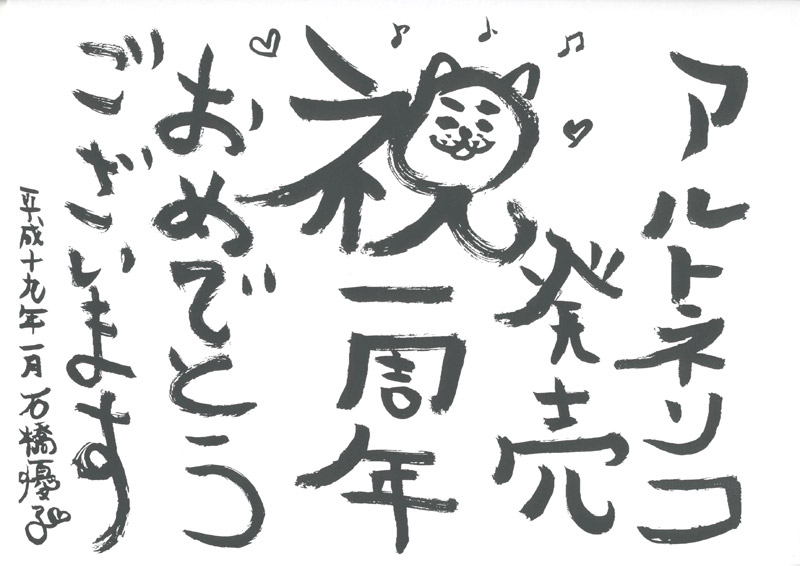 アルトネリコ
発売
祝一周年
おめでとう
ございます
平成十九年一月石橋優子